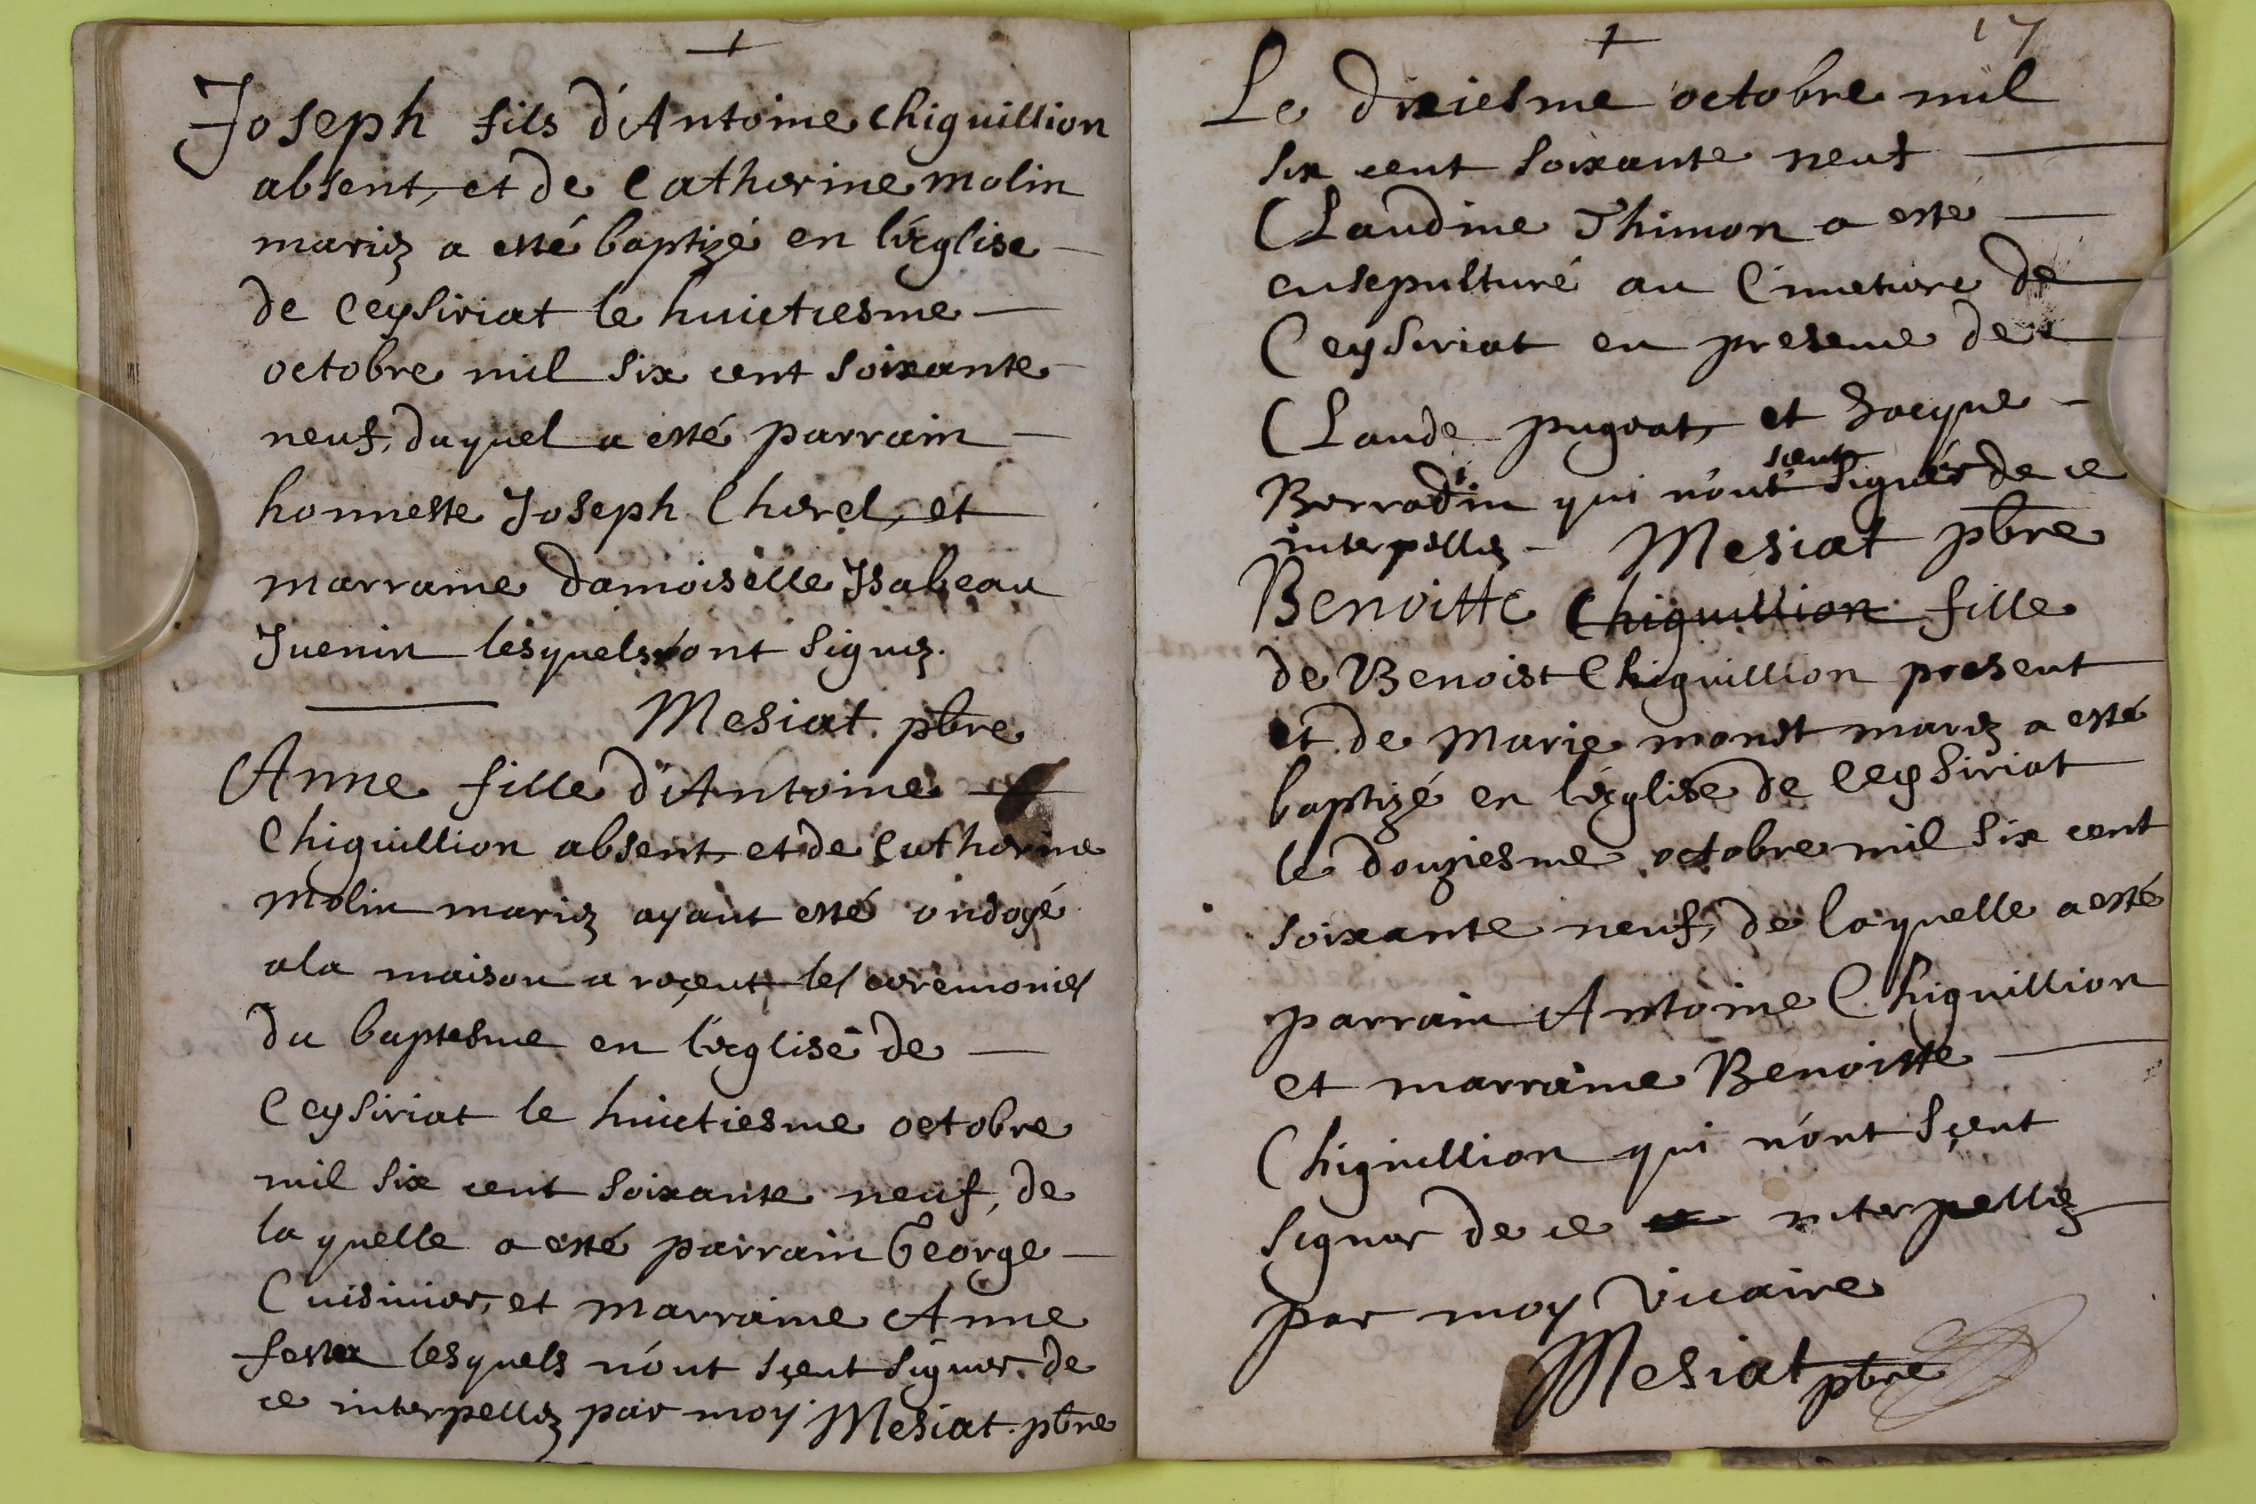 +
Joseph fils d'Antoine Chiguillion
absent, et de Catherine molin
mariez a esté baptizé en l'église
de Ceysiriat le huictiesme
octobre mil six cent soixante
neuf, duquel a esté parrain
honneste Joseph Chorel, et
marraine damoiselle Isabeau
Juenin lesquels ont signez.
Mesiat. pbre
Anne fille d'Antoine
Chiguillion absent, et de Catherine
molin mariez ayant esté ondoyé
ala maison a reçeut les ceremonies
du baptesme en l'église de
Ceysiriat le huictiesme octobre
mil six cent soixante neuf, de
la quelle a esté parrain George
Cuisinier, et marraine Anne
lesquels n'ont sçeut signer de
ce interpellez par moy Mesiat. pbre
+ 17
Le dixiesme octobre mil
six cent soixante neuf
Claudine Thimon a esté
ensepulturé au Cimetiere de
Ceysiriat en presence de
Claude pugeat, et Jacque
sceut
Borradin qui n'ont signer de ce
interpellez - Mesiat pbre
Benoitte Chiguillion fille
de Benoist Chiguillion present
et de Marie monet mariz a esté
baptizé en l'église de Ceysiriat
le douziesme octobre mil six cent
soixante neuf, de laquelle a esté
parrain Antoine Chiguillion
et marraine Benoitte
Chiguillion qui n'ont sçeut
signer de ce interpellez
par moy vicaire
Mesiat pbre